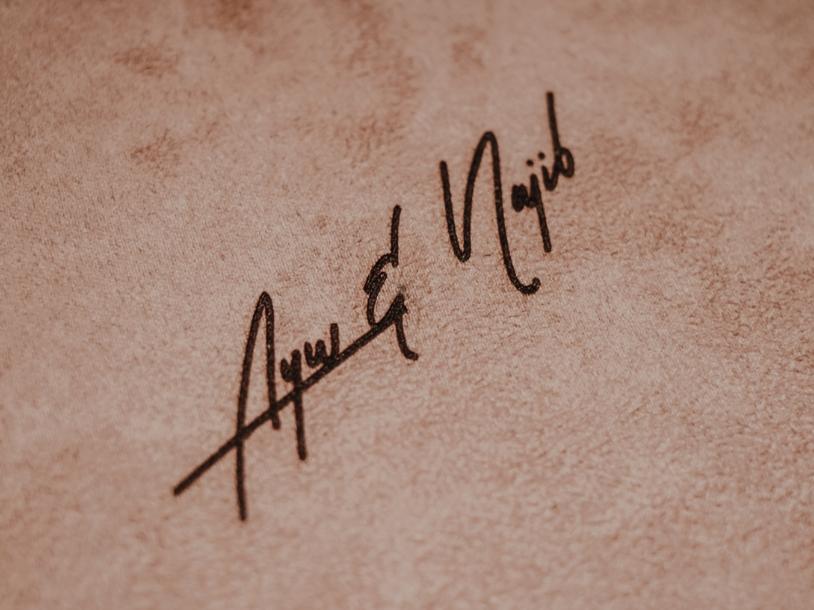 Ayu & Najib